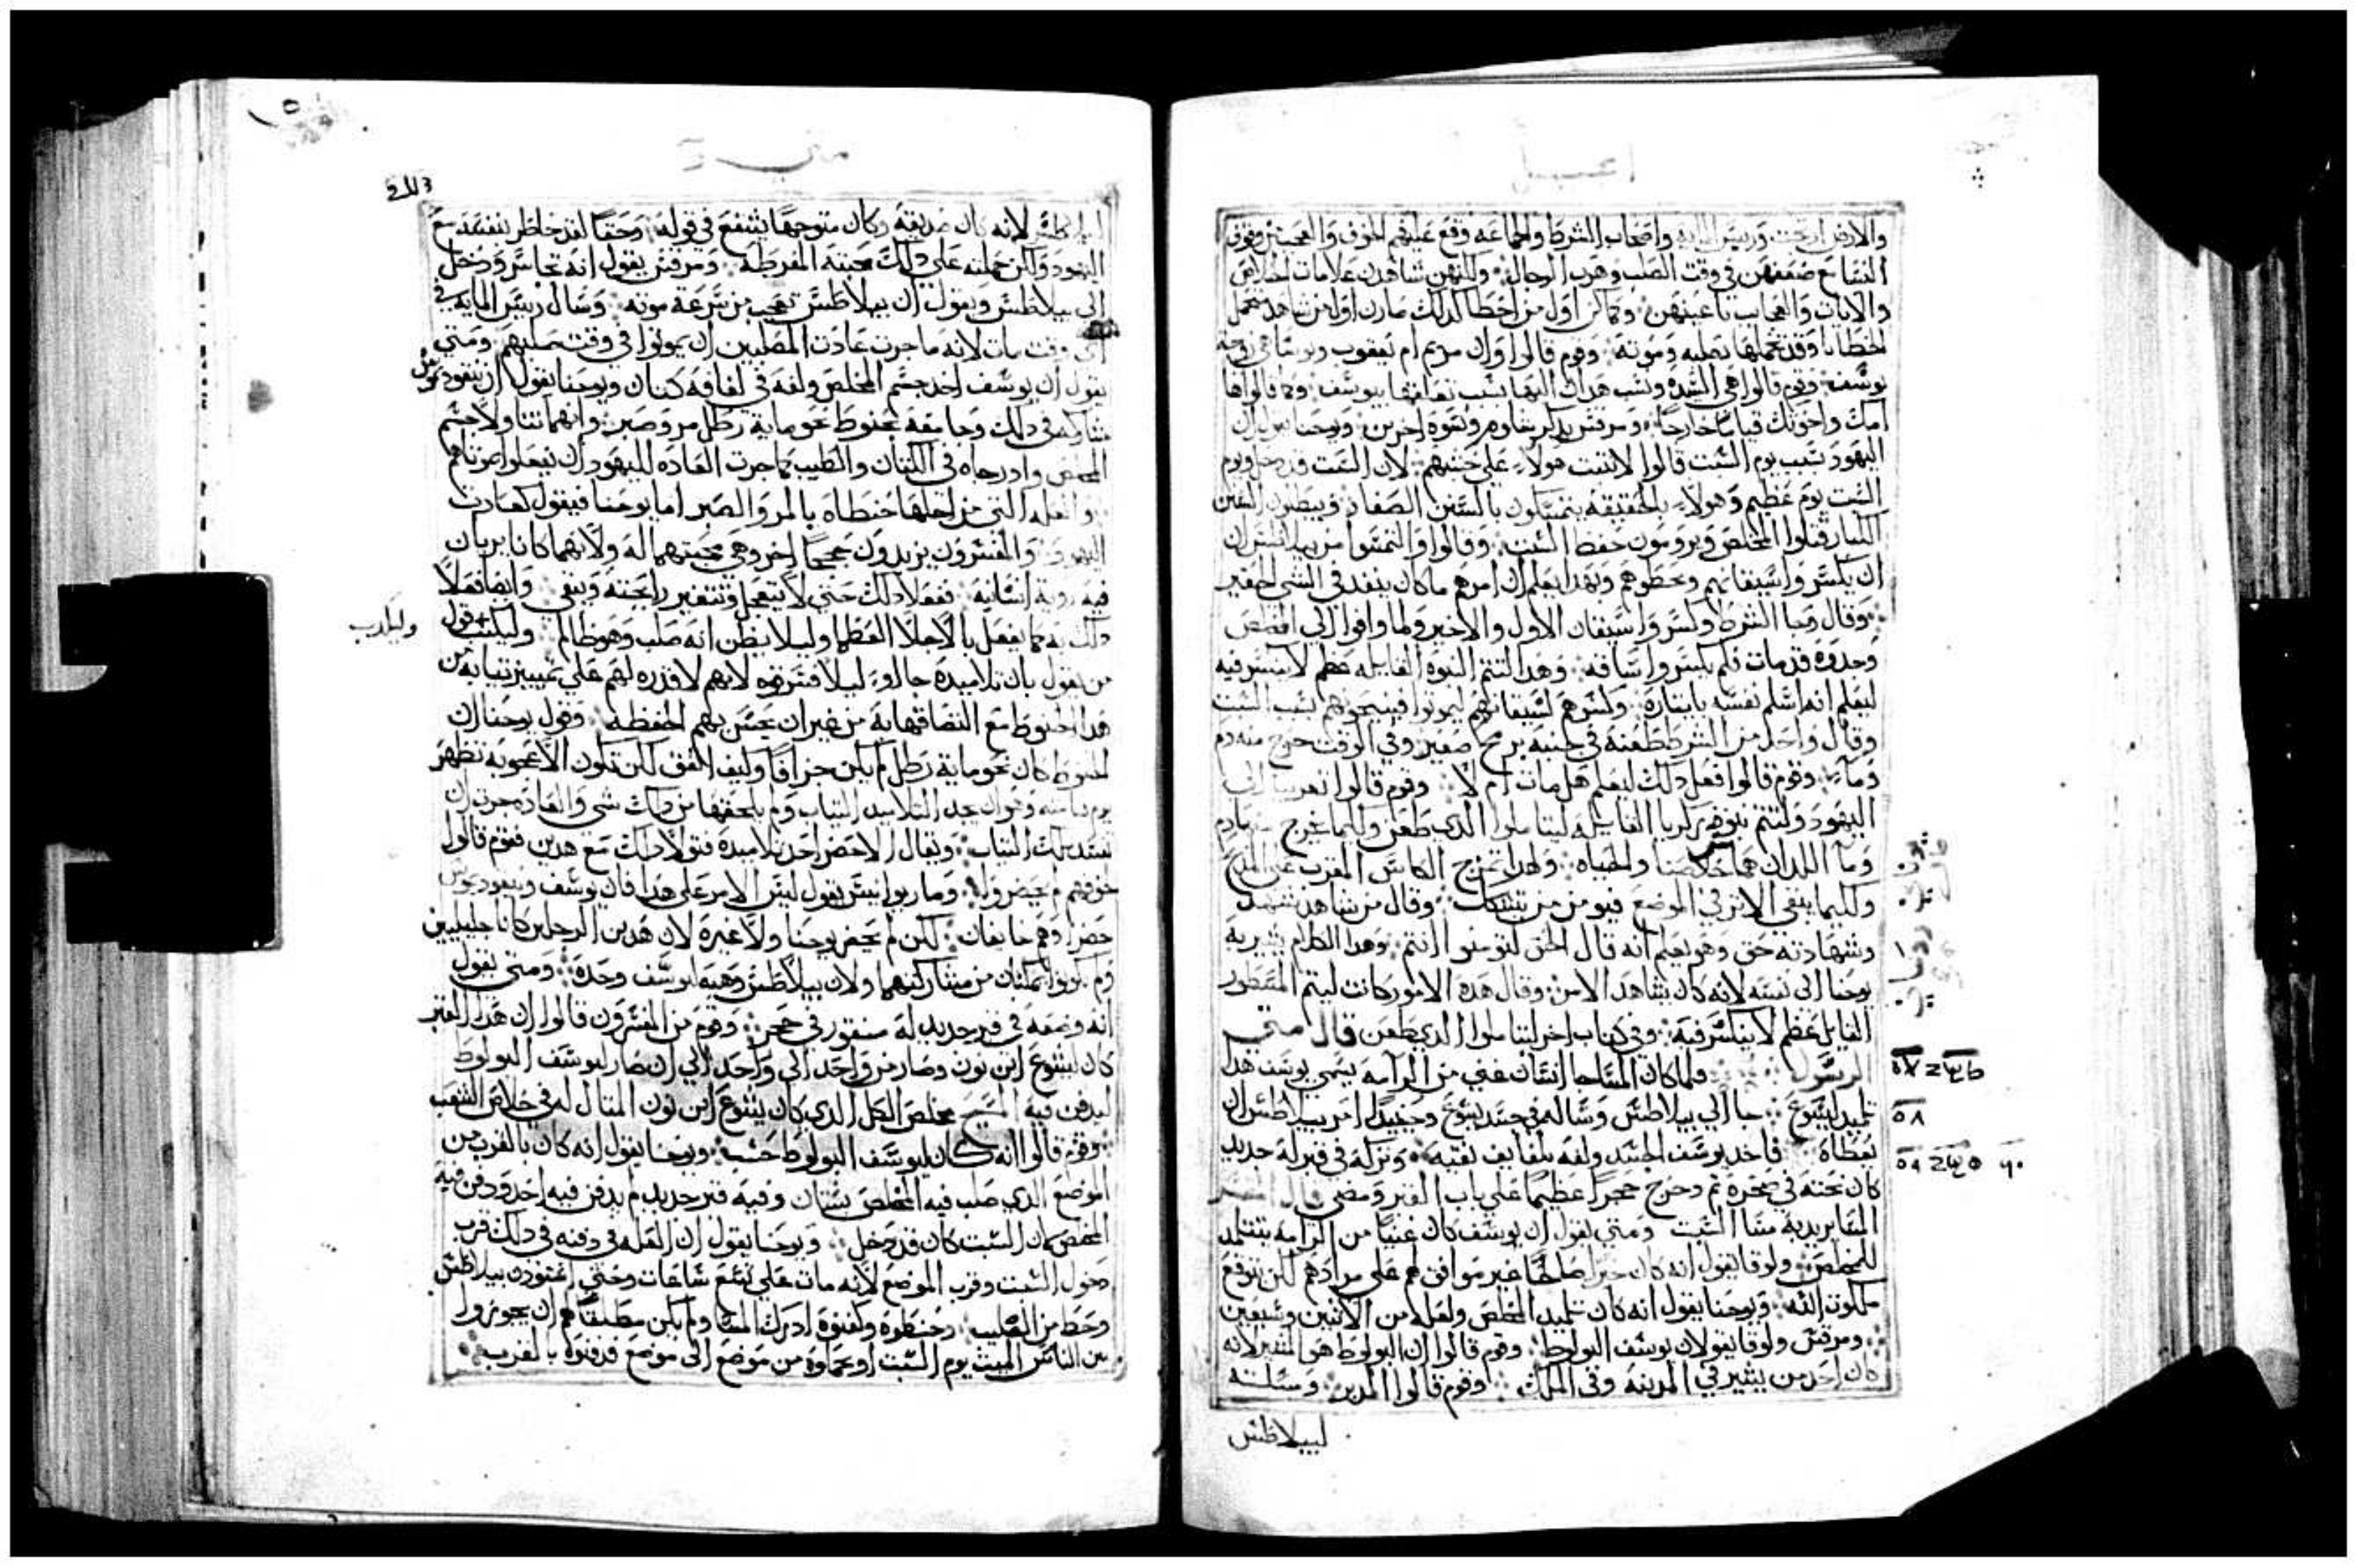 انجيل
والارض ارتجت ورييس المايه واصحاب الشرط والجماعه وقع عليهم الخوف والعجب
النسا مع ضعفهن في وقت الصلب وهرب الرجال ولكنهن شاهدن علامات الخلاص
والايات والعجايب باعينهن وكما كن اول من اخطا لدلك صارن اولا من شاهد متحمل
الخطايا وقد تحملها بصلبه وموته وقوم قالوا وان مريم ام يعقوب ويوسا هي زوجة
يوسف وقوم قالوا هي السيده ونسب هدان اليها بسبب تعلقها بيوسف وكما قالوا ها
امك واخوتك قياما خارجا ومرقس يدكر شلوم ونسوه اخرين ويوحنا يقول ان
اليهود بسبب يوم السبت قالوا لا تبت هولاء على خشبهم لان السبت قد دخل ويوم
السبت يوم عظيم وهولاء بالحقيقه يتمسكون بالسنن الصغار ويبطلون السنن
الكبار قتلوا المخلص ويرومون حفظ السبت وقالوا والتمسوا من بيلاطس ان
ان يكسروا سيقانهم ويحطوهم وبهدا يعلم ان امرهم ما كان ينفد في الشي الحقير
وقال وجا الشرط وكسروا سيقان الاول والاخير ولما وافوا الي المخلص
وجدوه قد مات فلم يكسروا ساقه وهدا لتتم النبوه القايله عظم لا ينكسر فيه
ليعلم انه اسلم نفسه بايثاره وكسرهم لسيقانهم ليموتوا فينحوهم بسبب السبت
وقال واحد من الشرط طعنه في جنبه برمح صغير وفي الوقت خرج منه دم
وماء وقوم قالوا فعل دلك ليعلم هل مات ام لا وقوم قالوا تعربنا الي
اليهود ولتتم نبوه زكريا القايله ليتاملوا الدي طعن وكيما يخرج منها دم
وما اللدان هما خلاصنا والحياه ولهدا تمزج الكاس المقرب على المدبح
وكيما يبقى الاثر في الموضع فيومن من يتشكك وقال من شاهد شهد
وشهادته حق وهو يعلم انه قال الحق لتومنوا انتم وهدا الكلام يشير به
يوحنا الى نفسه لانه كان يشاهد الامر وقال هده الامور كانت ليتم المسطور
القايل عظم لا ينكسر فيه وفي كتاب اخر ليتاملوا الدي طعن قال متى
الرسول فلما كان المسا جا انسان غني من الرامه يسمى يوسف هدا
تلميد ليسوع جا الي بيلاطس وساله في جسد يسوع وحينيد امر بيلاطس ان
يعطاه فاخد يوسف الجسد ولفه بلفايف نقيه وتركه في قبر له جديد
كان نحته في صخره تم دحرج حجرا عظيما علي باب القبر ومضى قال المفسر
المسا يريد به مسا السبت ومتى يقول ان يوسف كان غنيا من الرامه يتتلمد
للمخلص ولوقا يقول انه كان خيرا صالحا غير موافق لهم على مرادهم لكن يتوقع
ملكوت الله ويوحنا يقول انه كان تلميد المخلص ولعله من الاثنين وسبعين
ومرقس ولوقا يقولان يوسف البولوط وقوم قالوا ان البولوط هو المشير لانه
كان احد من يشير في المدينه وفي الملك وقوم قالوا المدبر ومسلته
لبيلاطس
٥٧
٥٨
٥٩ ٦٠
متى
لبيلاطس لانه كان صديقه وكان متوجها يشفع في قوله وحقا لقد خاطر بنفسه مع
اليهود ولكن حملته على دلك محبته المفرطه ومرقس يقول انه تجاسر ودخل
الى بيلاطس ويقول ان بيلاطس تعجب من سرعة موته وسال رييس المايه في
اي وقت مات لانه ما جرت عادت المصلبين ان يموتوا في وقت صلبهم ومتى
يقول ان يوسف اخد جسم المخلص ولفه في لفافه كتان ويوحنا يقول ان نيقوديموس
شاركه في دلك وجا معه بحنوط نحو ماية رطل مر وصبر وانهما تناولا جسم
المخلص وادرجاه في الكتان والطيب كما جرت العاده لليهود ان يفعلوا بموتاهم
والعله التي من اجلها حنطاه بالمر والصبر اما يوحنا فيقول كعادت
اليهود والمفسرون يزيدون حججا اخر وهي محبتهما له ولانهما كانا يريان
فيه روية انسانيه ففعلا دلك حتى لا يتعجل وتتغير رايحته ويبقى وايضا فعلا
دلك به كما يفعل بالاجلا العظما وليلا يظن انه صلب وهو ظالم وليكدب قول
من يقول بان تلاميده جاوا ليلا فسرقوه لانهم لا قدره لهم على تمييز تيابه من
هدا الحنوط مع التصاقها به من غير ان يحس بهم الحفظه وقول يوحنا ان
الحنوط كان نحو ماية رطل لم يكن جزافا وكيف اتفق لكن لتكون الاعجوبه تظهر
وليكدب
تستد بدلك التياب ويقال لم لا حضر احد تلاميده فتولا دلك مع هدين فقوم قالوا
خوفهم لم يحضروا وماري وانيس يقول ليس الامر على هدا فان يوسف ونيقوديموس
حضرا وهم خايفان لكن لم يحضر يوحنا ولا غيره لان هدين الرجلين كانا جليليين
ولم يكونوا يمكنان من مشاركتهما ولان بيلاطس وهبه ليوسف وحده ومتى يقول
انه وضعه في قبر جديد له منقور في حجر وقوم من المفسرون قالوا ان هدا القبر
كان ليشوع ابن نون وصار من واحد الى واحد الي ان صار ليوسف البولوط
ليدفن فيه المسيح مخلص الكل الدي كان يشوع ابن نون المتال له في خلاص الشعب
وقوم قالوا انه كان ليوسف البولوط حسب ويوحنا يقول انه كان بالقرب من
الموضع الدي صلب فيه المخلص بستان وفيه قبر جديد لم يدفن فيه احد ودفن فيه
المخلص لان السبت كان قد دخل ويوحنا يقول ان العله في دفنه في دلك قرب
دخول السبت وقرب الموضع لانه مات على تسع ساعات وحتى اغتودن بيلاطس
وحط من الصليب وحنطوه وكفنوه ادرك المسا ولم يكن مطلقا لهم ان يجوزوا
بين الناس الميت يوم السبت او يحملوه من موضع الى موضع فدفنوه بالقرب